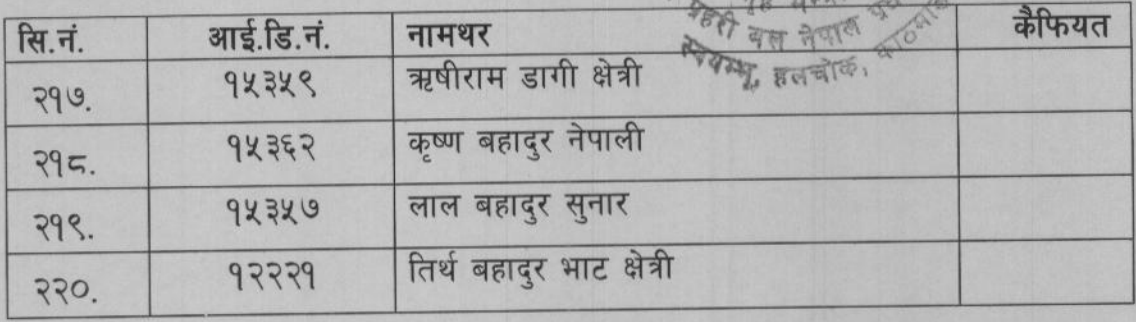 प्रहरी बल नेपाल
स्वयम्भू, हलचोक,
सि.नं. आई.डि.नं. नामथर कैफियत
२१७. १५३५९ ऋषीराम डागी क्षेत्री
२१८. १५३६२ कृष्ण बहादुर नेपाली
२१९. १५३५७ लाल बहादुर सुनार
२२०. १२२२१ तिर्थ बहादुर भाट क्षेत्री